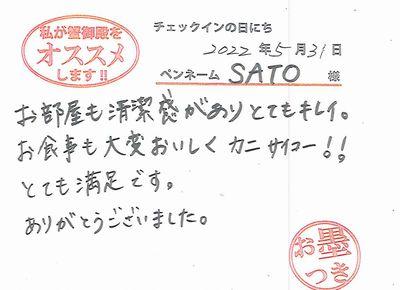 私が蟹御殿を
オススメ
します!!
チェックインの日にち
2022年5月31日
ペンネーム SATO 様
お部屋も清潔感がありとてもキレイ。
お食事も大変おいしくカニサイコー!!
とても満足です。
ありがとうございました。
お墨
つき